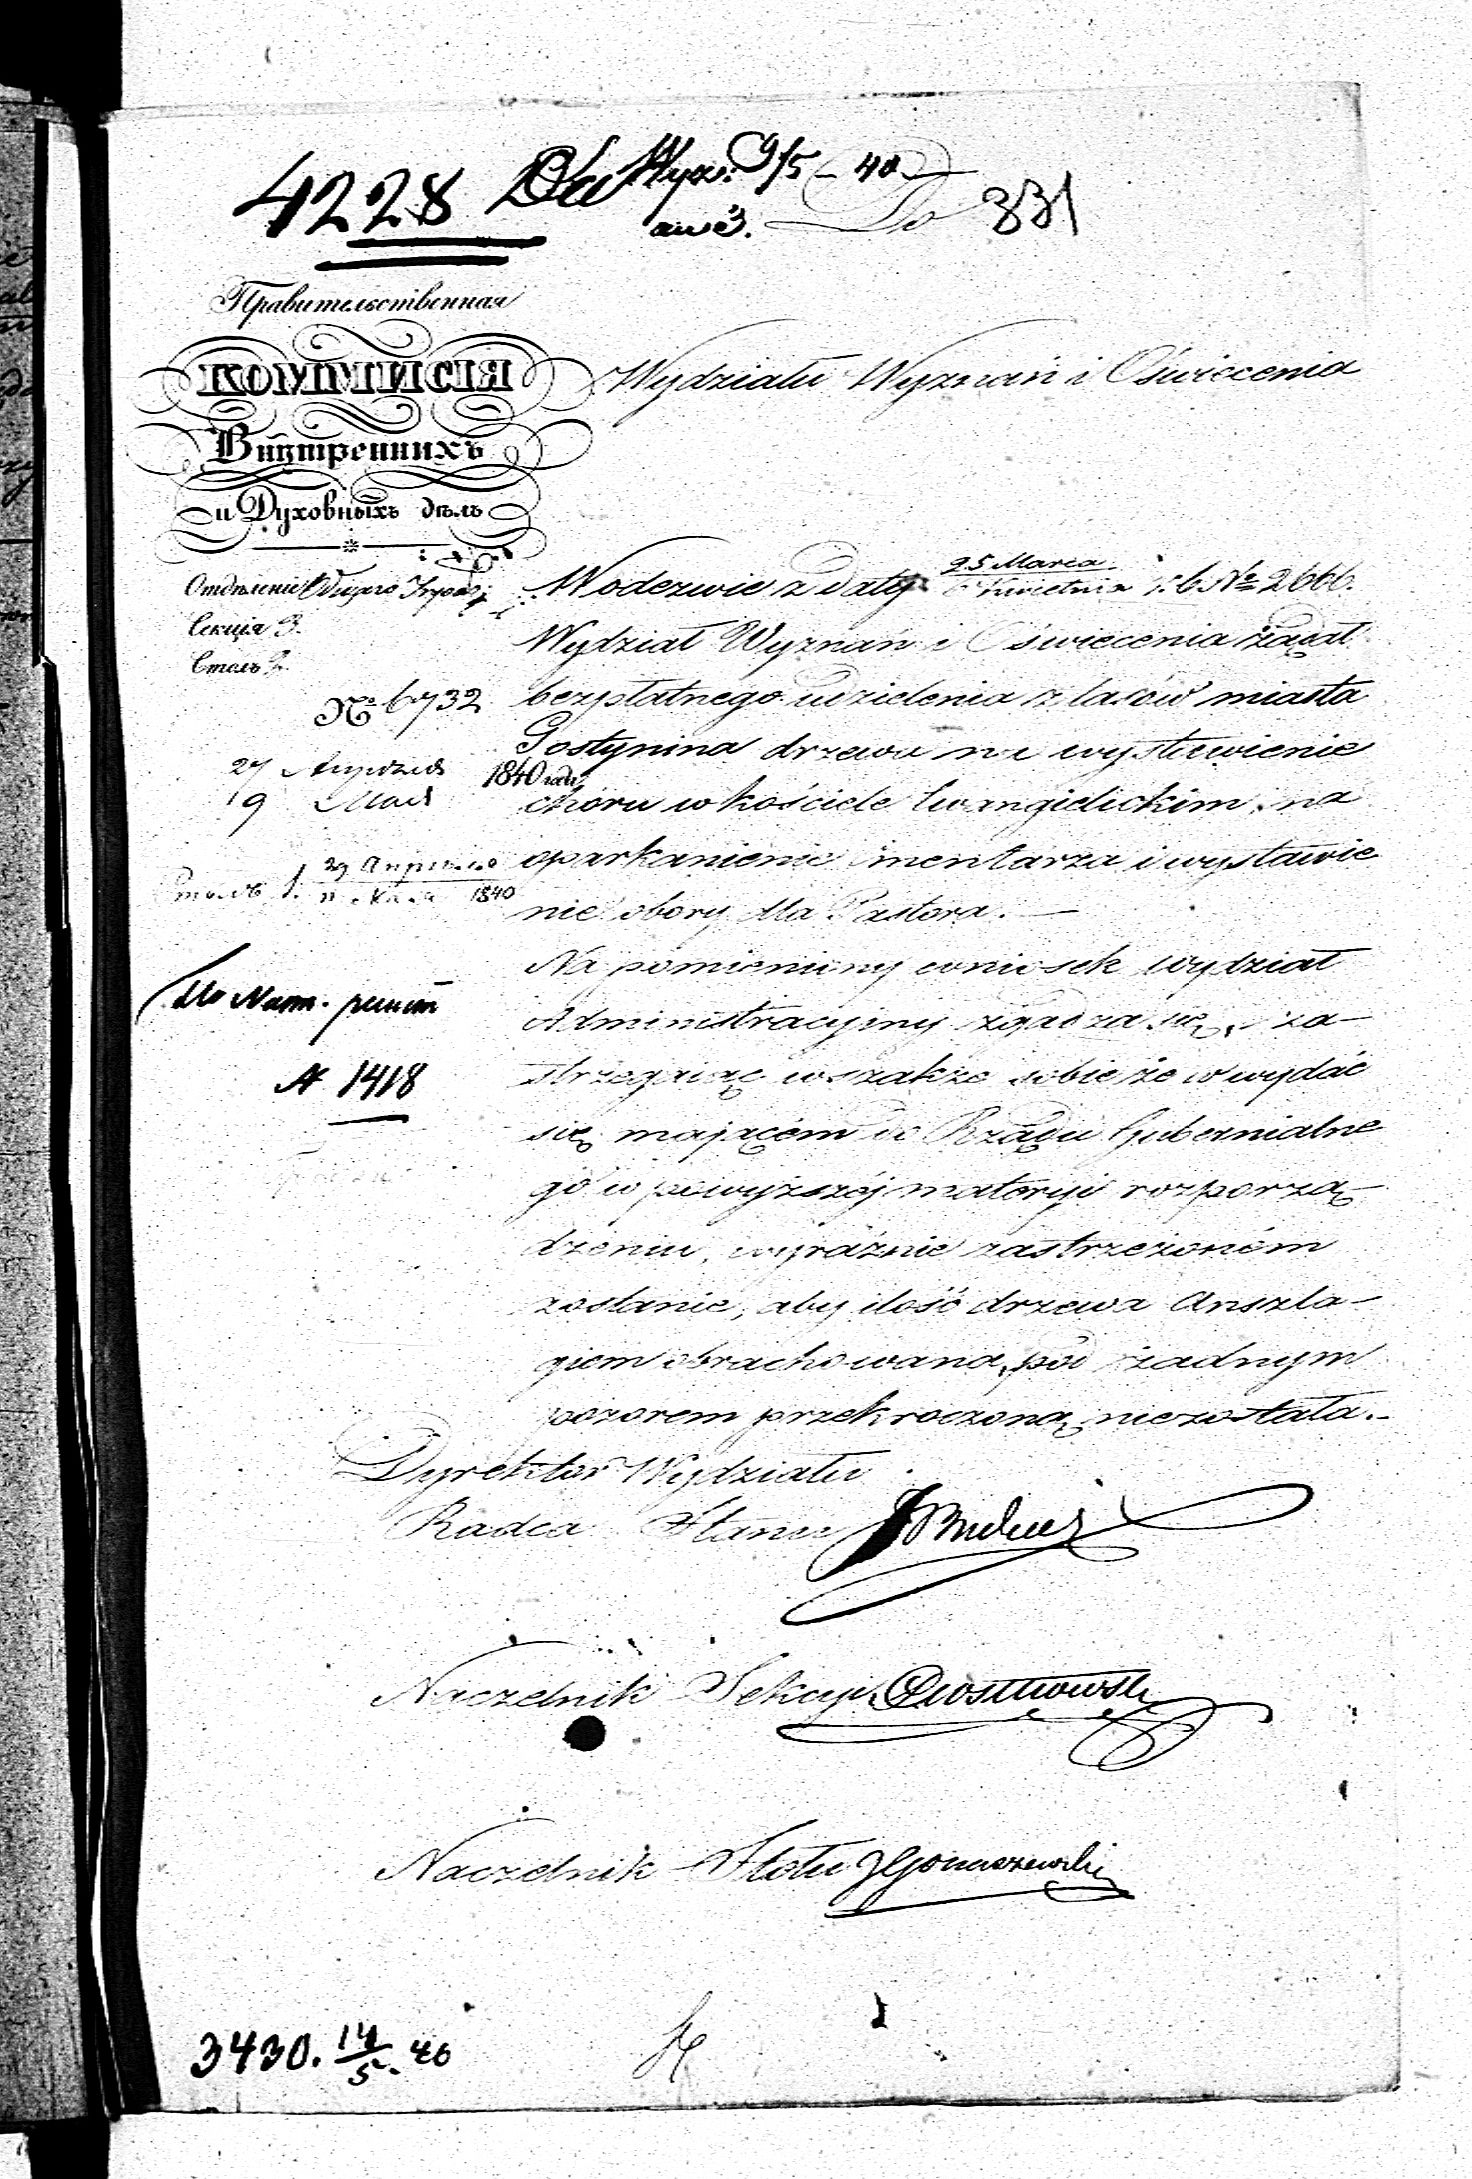 4228
9/5 - 40
Do 331
Правительственная
КОММИСІЯ
Внутреннихъ
и Духовныхъ дѣлъ
Wydziału Wyznań i Oświecenia
Отдѣленіе Общаго
Секція 3.
Столъ 2.
№ 6732
27 Апрѣля
9 Мая 1840 года
Столъ 1. 29 Апрѣля
11 Мая 1840
№ 1418
W odezwie z daty 25 Marca
6 Kwietnia r: b № 2666.
Wydział Wyznań i Oświecenia żądał
bezpłatnego udzielenia z lasów miasta
Gostynina drzewa na wystawienie
chóru w kościele Ewangielickim, na
oparkanienie smentarza i wystawie
nie obory dla Pastora. —
Na pomieniony wniosek Wydział
Administracyjny zgadza się, za-
strzegając wszakże sobie że w wydać
się mającém do Rządu Gubernialne
go w powyższéj materyi rozporzą-
dzeniu, wyraźnie zastrzeżoném
zostanie, aby ilość drzewa Anszla-
giem obrachowana, pod żadnym
pozorem przekroczoną niezostała. -
Dyrektor Wydziału
Radca Stanu
Naczelnik Sekcyi
Naczelnik Stołu
3430. 14/5. 40